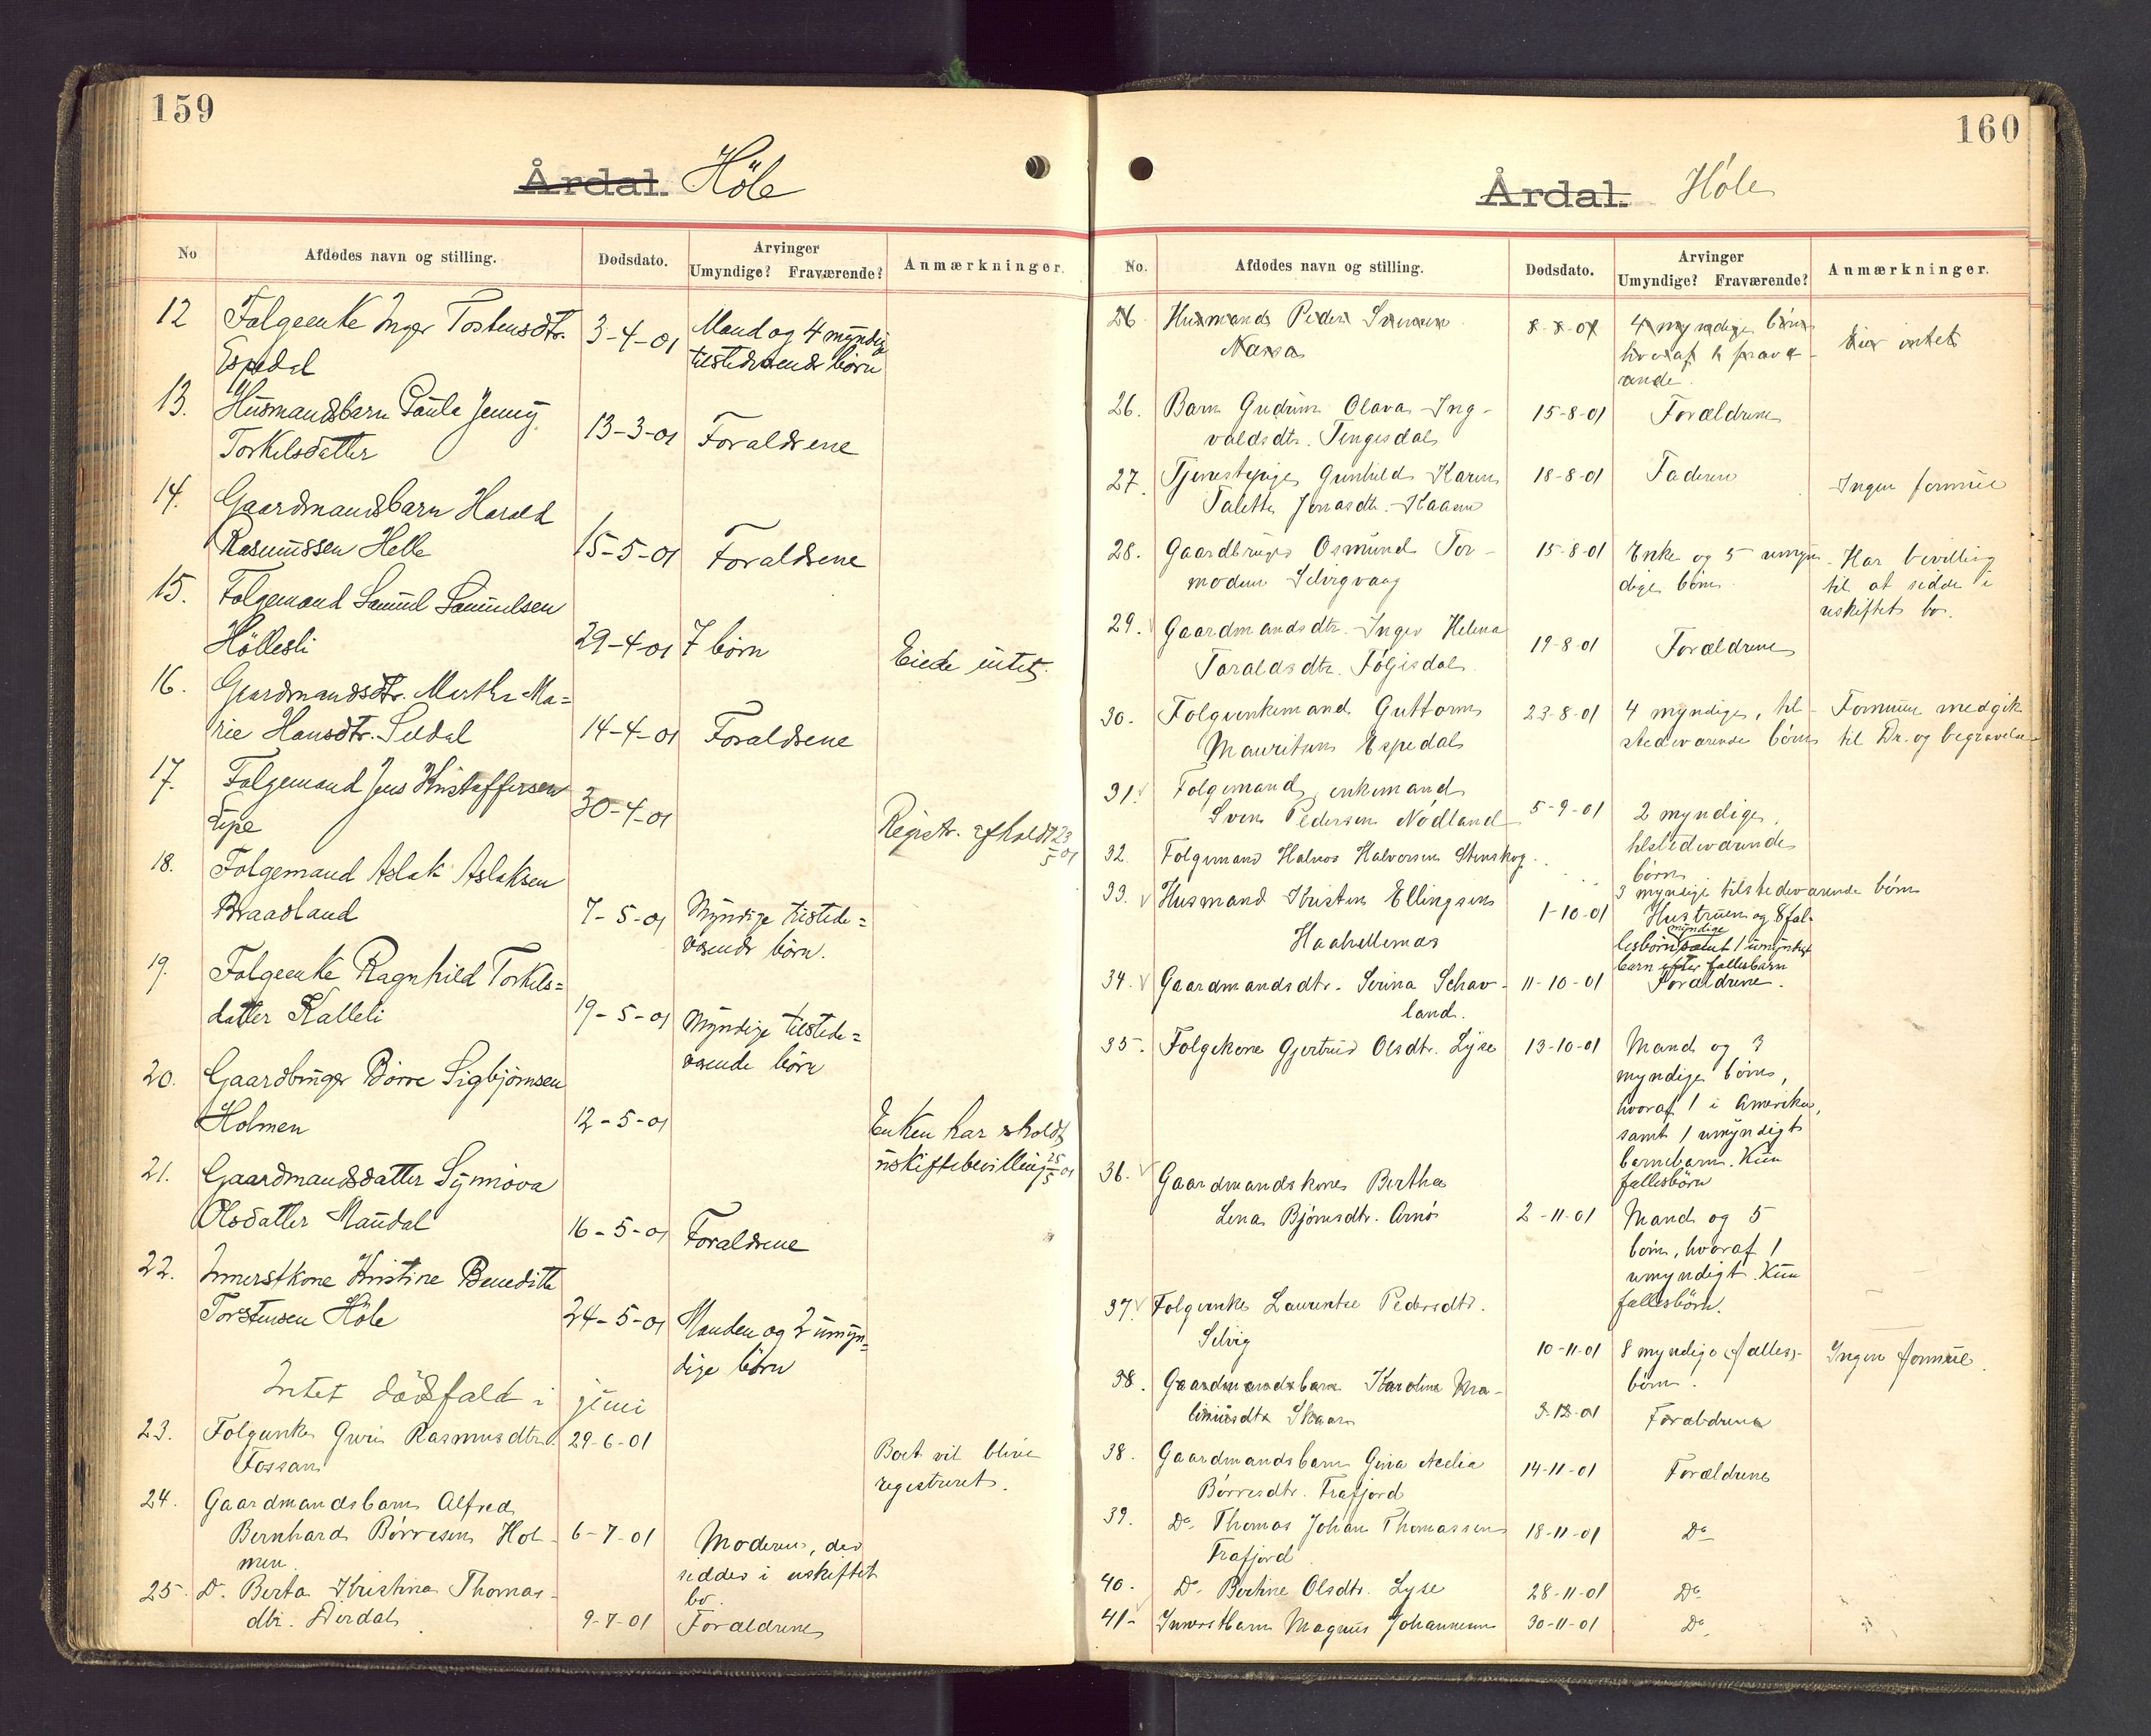 159
Årdal. Höle
No
Afdødes navn og stilling.
Dødsdato.
Arvinger
Umyndige? Fraværende?
Anmærkninger.
12 Folgeenke Inger Tostensdtr. 3-4-01 Mand og 4 myndig
Espedal tilstedværende børn
13. Husmandsbarn Paula Jenny
Torkelsdatter 13-3-01 Forældrene
14. Gaardmandsbarn Harald
Rasmussen Helle 15-5-01 Forældrene
15. Folgemand Samuel Samuelsen
Höllesli 29-4-01 7 børn Eiede intet.
16. Gaardmandsdtr. Marthe Ma=
rie Hansdtr. Seldal 14-4-01 Forældrene
17. Folgemand Jens Kristoffersen 30-4-01
Eipe Registr. afholdt 23/5 01
18. Folgemand Aslak Aslaksen
Braadland 7-5-01 Myndige tilstede=
værende børn.
19. Folgeenke Ragnhild Torkels=
datter Kalleli 19-5-01 Myndige tilstede=
værende børn
20. Gaardbruger Börre Sigbjørnsen
Holmen 12-5-01 Enken har erholdt
uskiftebevilling 25/5 01
21. Gaardmandsdatter Synnøva
Olsdatter Maudal 16-5-01 Forældrene
22. Innerstkone Kristine Benedikte
Torstensen Höle 24-5-01 Manden og 2 umyn=
dige børn
Intet dödsfald i juni
23. Folgeenke Guri Rasmusdtr. 29-6-01
Fossan Boet vil blive
registreret.
24. Gaardmandsbarn Alfred
Bernhard Børresen Hol- 6-7-01 Moderen, der
men sidder i uskiftet
bo.
25 D. Berta Kristina Thomas-
dtr. Dirdal 9-7-01 Forældrene
160
Årdal. Høle
No.
Afdødes navn og stilling.
Dødsdato.
Arvinger
Umyndige? Fraværende?
Anmærkninger.
26 Husmand Peder 8-8-01 4 myndige børn
hvoraf 1 fravæ- Eier intet
rende.
26. Barn Gudrun Olava Ing- 15-8-01 Forældrene
valdsdtr. Tengesdal
27. Tjenestepige Gunhild Karen 18-8-01 Faderen Ingen formue
Taletta Jonasdtr. Haaen
28. Gaardbruger Osmund Tor- 15-8-01 Enke og 5 umyn- Har bevilling
modsen Selvigvaag dige børn til at sidde i
uskiftet bo.
29. Gaardmandsdtr. Inger Helena
Taraldsdtr. Følgisdal 19-8-01 Forældrene
30. Folgeenkemand Guttorm 23-8-01 4 myndige, til- Formuen medgik
Mauritsen Espedal stedeværende børn til Dr. og begravelse
31. Folgemand, enkemand
Sven Pedersen Nødland 5-9-01 2 myndige,
tilstedeværende
børn
32. Folgemand Halvor Halvorsen Stenskog
3 myndige tilstedeværende børn
33. Husmand Kristen Ellingsen 1-10-01 Hustruen og 8 fæl-
Haahellernæs lesbørn myndige samt 1 umyndigt
barn efter fællesbarn
34. Gaardmandsdtr. Serina Schav- 11-10-01 Forældrene.
land.
35. Folgekone Gjertrud Olsdtr. Lyse 13-10-01 Mand og 3
myndige børn,
hvoraf 1 i Amerika,
samt 1 umyndigt
barnebarn. Kun
fællesbørn
36. Gaardmandskone Bertha
Lena Bjørnsdtr. Arnø 2-11-01 Mand og 5
børn, hvoraf 1
umyndigt. Kun
fællesbørn.
37. Folgeenke Laurentse Pedersdtr.
Selvig 10-11-01 8 myndige fælles- Ingen formue.
børn.
38. Gaardmandsbarn Karoline Ma-
liniusdtr Skaar 3-12-01 Forældrene
38. Gaardmandsbarn Gina Aedia 14-11-01 Forældrene
Børresdtr. Frafjord
39. Do Thomas Johan Thomassen 18-11-01 Do
Frafjord
40. Do Bertine Olsdtr. Lyse 28-11-01 Do
41- Innerstbarn Magnus Johannesen 30-11-01 Do